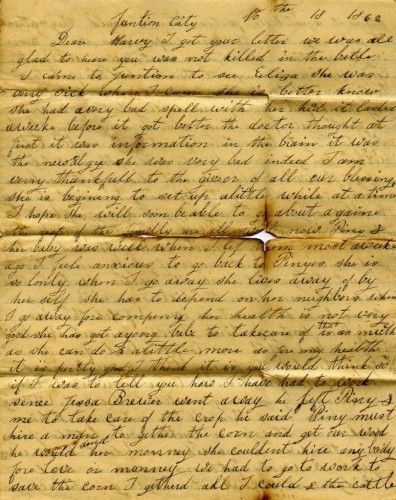 Juntion City 18 1862
Dear Harvy I got your letter we was all
glad to hear you was not killed in the battle
I came to Juntion to see Eliza she was
very sick when I came she is better know
she had a very bad spell with her hed it lasted
a weeke before it got better the doctor thought at
first it was information in the brain it was
the newrolgy she was very bad indeed I am
very thankfull to the givor of all our blessing
she is begining to set up alittle while at a time
I hope she will soon be able to go about againe
the rest of the are all well now Piny &
her baby was well when I left them most a weeke
ago I feele anxious to go back to Pinyes she is
so lonly when I go away she lives away of by
her self she has to depend on her neighbors when
I go away fore company her health is not very
good she has got a yong babe to take care of that is as much
as she can do & a little more as for my health
it is pretty good I think it is you would think so
if I was to tell you how I have had to work
since Jessa Brewer went away he left Piny &
me to take care of the crop he said Piny must
hire a man to gether the corn and get our wood
he would send her monney she couldent hire any body
fore love or monney we had to go to work to
save the corn I getherd all I could & the cattle